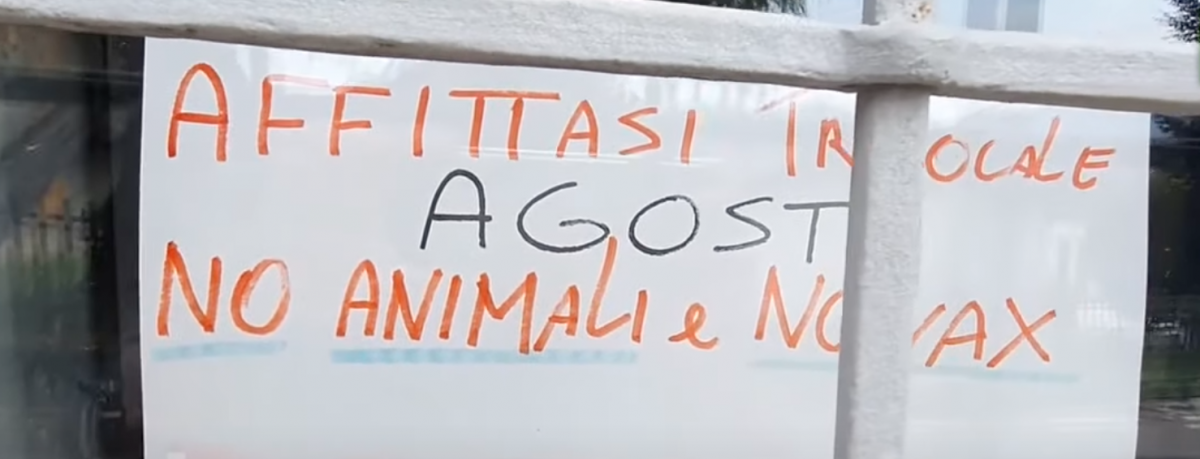 AFFITTASI TR OCALE
AGOST
NO ANIMALI e NO VAX